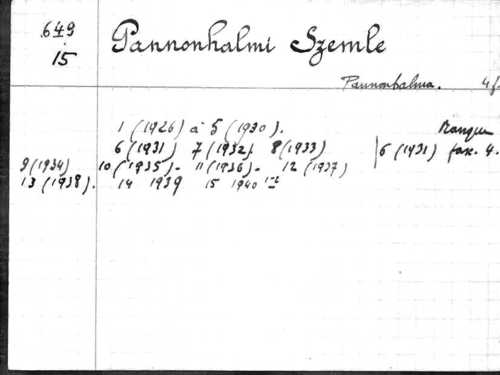 649
15
Pannonhalmi Szemle
Pannonhalma. 4 f
1 (1926) à 5 (1930). Manque
6 (1931) 7 (1932) 8 (1933) 6 (1931) fasc. 4.
9 (1934) 10 (1935)- 11 (1936)- 12 (1937)
13 (1938). 14 1939 15 1940